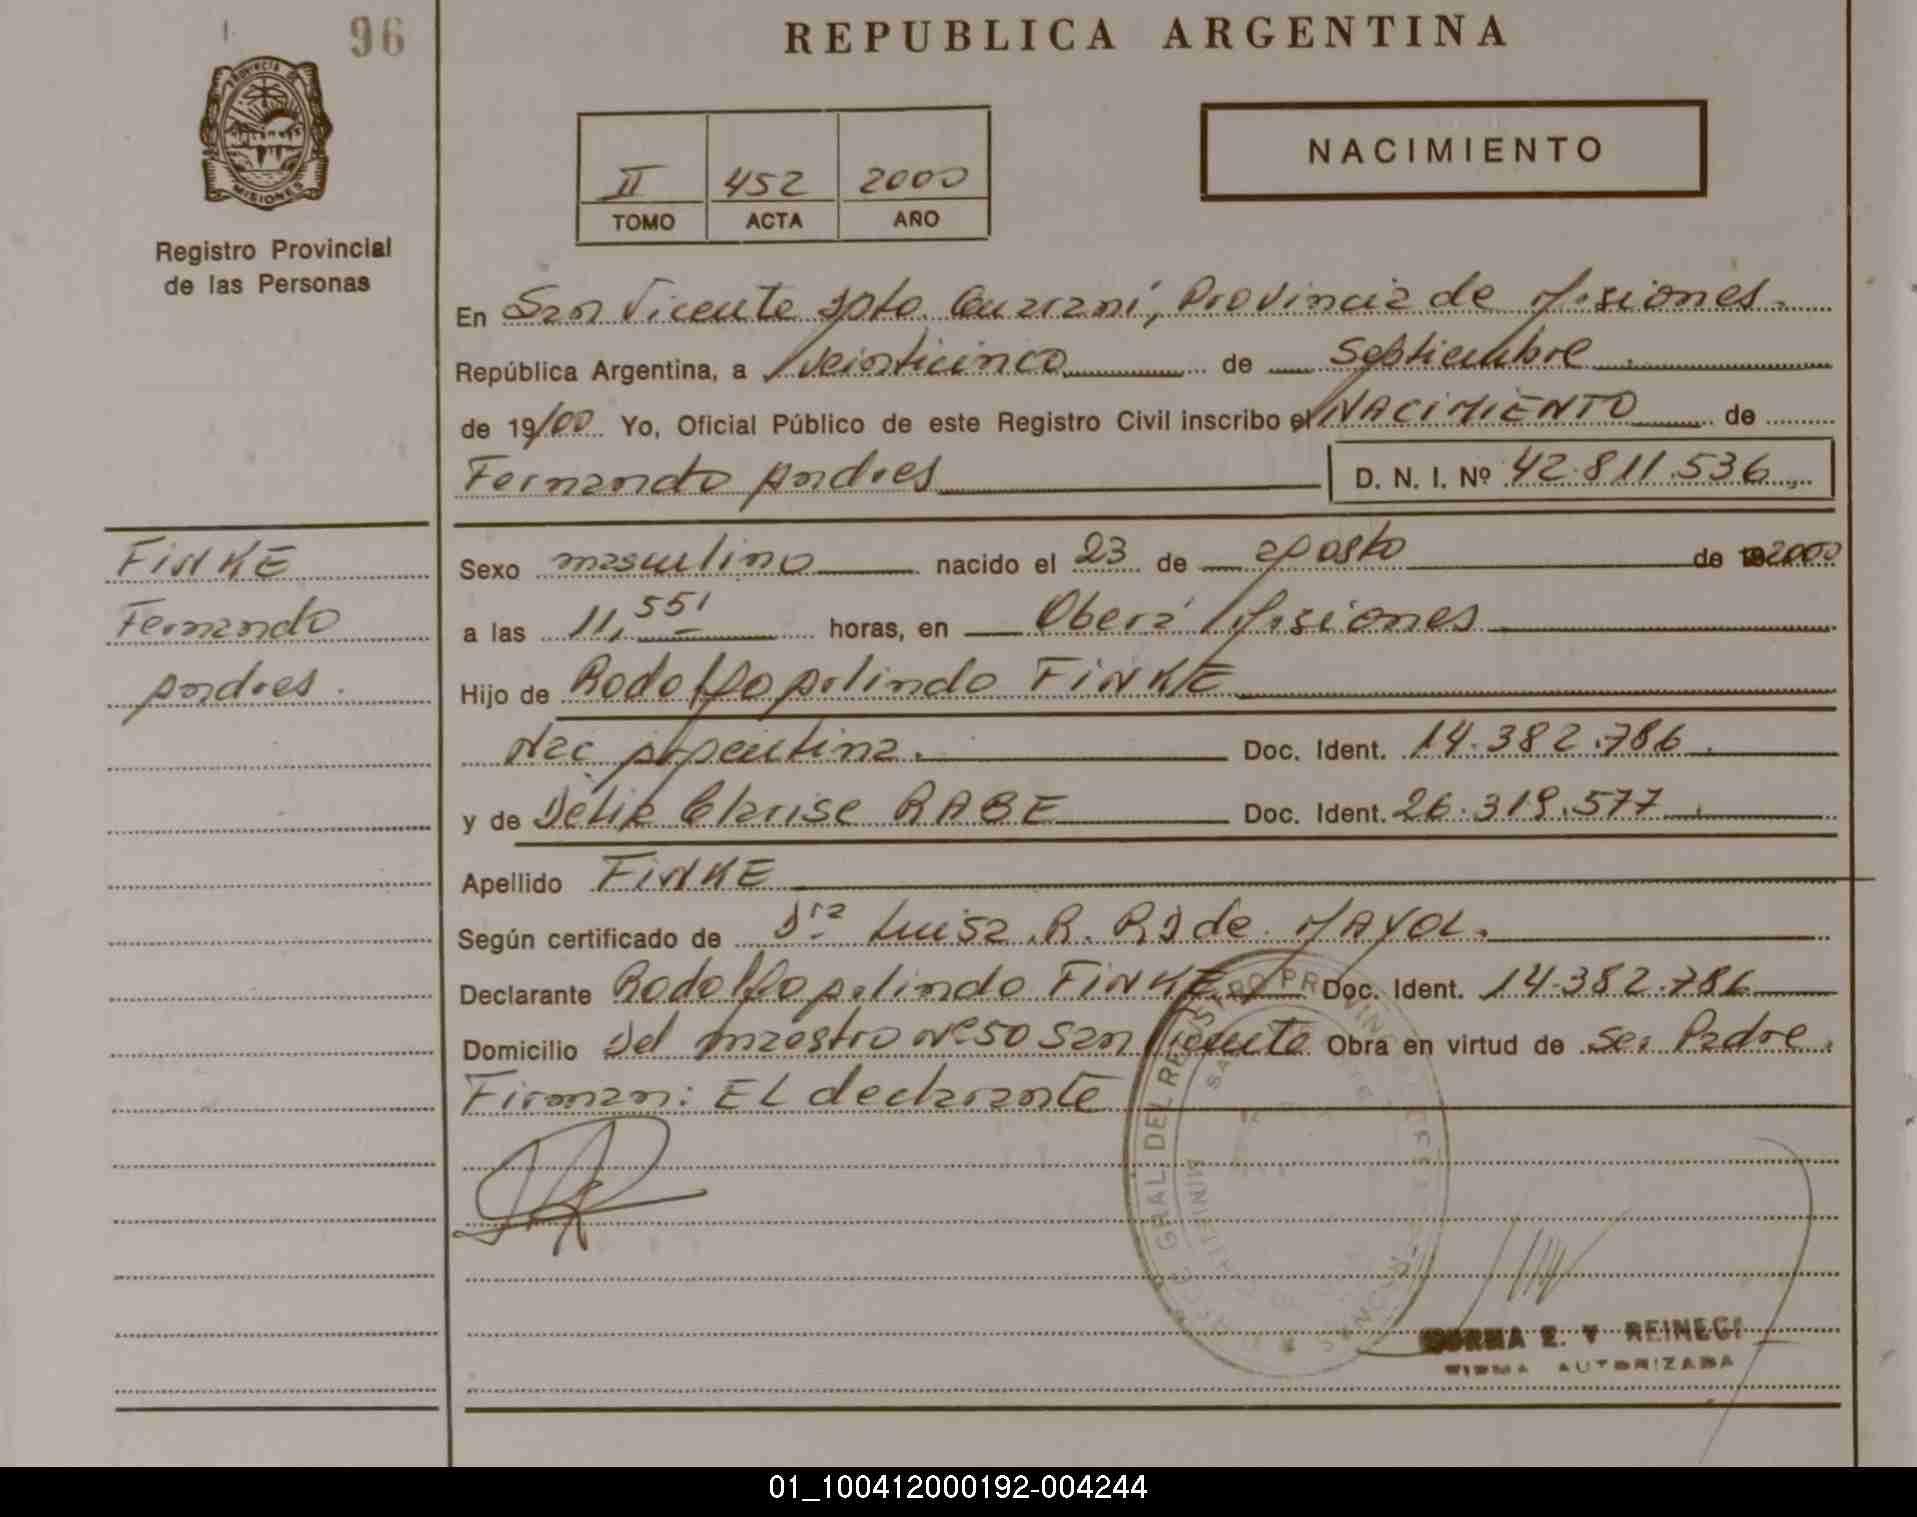 96
REPUBLICA ARGENTINA
PROVINCIA DE
MISIONES
Registro Provincial
de las Personas
NACIMIENTO
II 452 2000
TOMO ACTA AÑO
En San Vicente Dpto. Guaraní, Provincia de Misiones.
República Argentina, a veinticinco de Septiembre
de 19/00 Yo, Oficial Público de este Registro Civil inscribo el NACIMIENTO de
Fernando Andres D. N. I. Nº 42.811.536
FINKE
Fernando
Andres.
Sexo masculino nacido el 23 de agosto de 2000
a las 11,55' horas, en Oberá Misiones
Hijo de Rodolfo Arlindo FINKE
Nac. Argentina. Doc. Ident. 14.382.786.
y de Delia Clarise RABE Doc. Ident. 26.319.577.
Apellido FINKE
Según certificado de Dra Luisa R. R. de MAYOL.
Declarante Rodolfo Arlindo FINKE Doc. Ident. 14.382.786
Domicilio Del maestro Nº 50 San Vicente Obra en virtud de ser Padre.
Firman: EL declarante
GRAL. DEL REGISTRO PROVINC
NORMA E. V. REINEGI
FIRMA AUTORIZADA
01_100412000192-004244